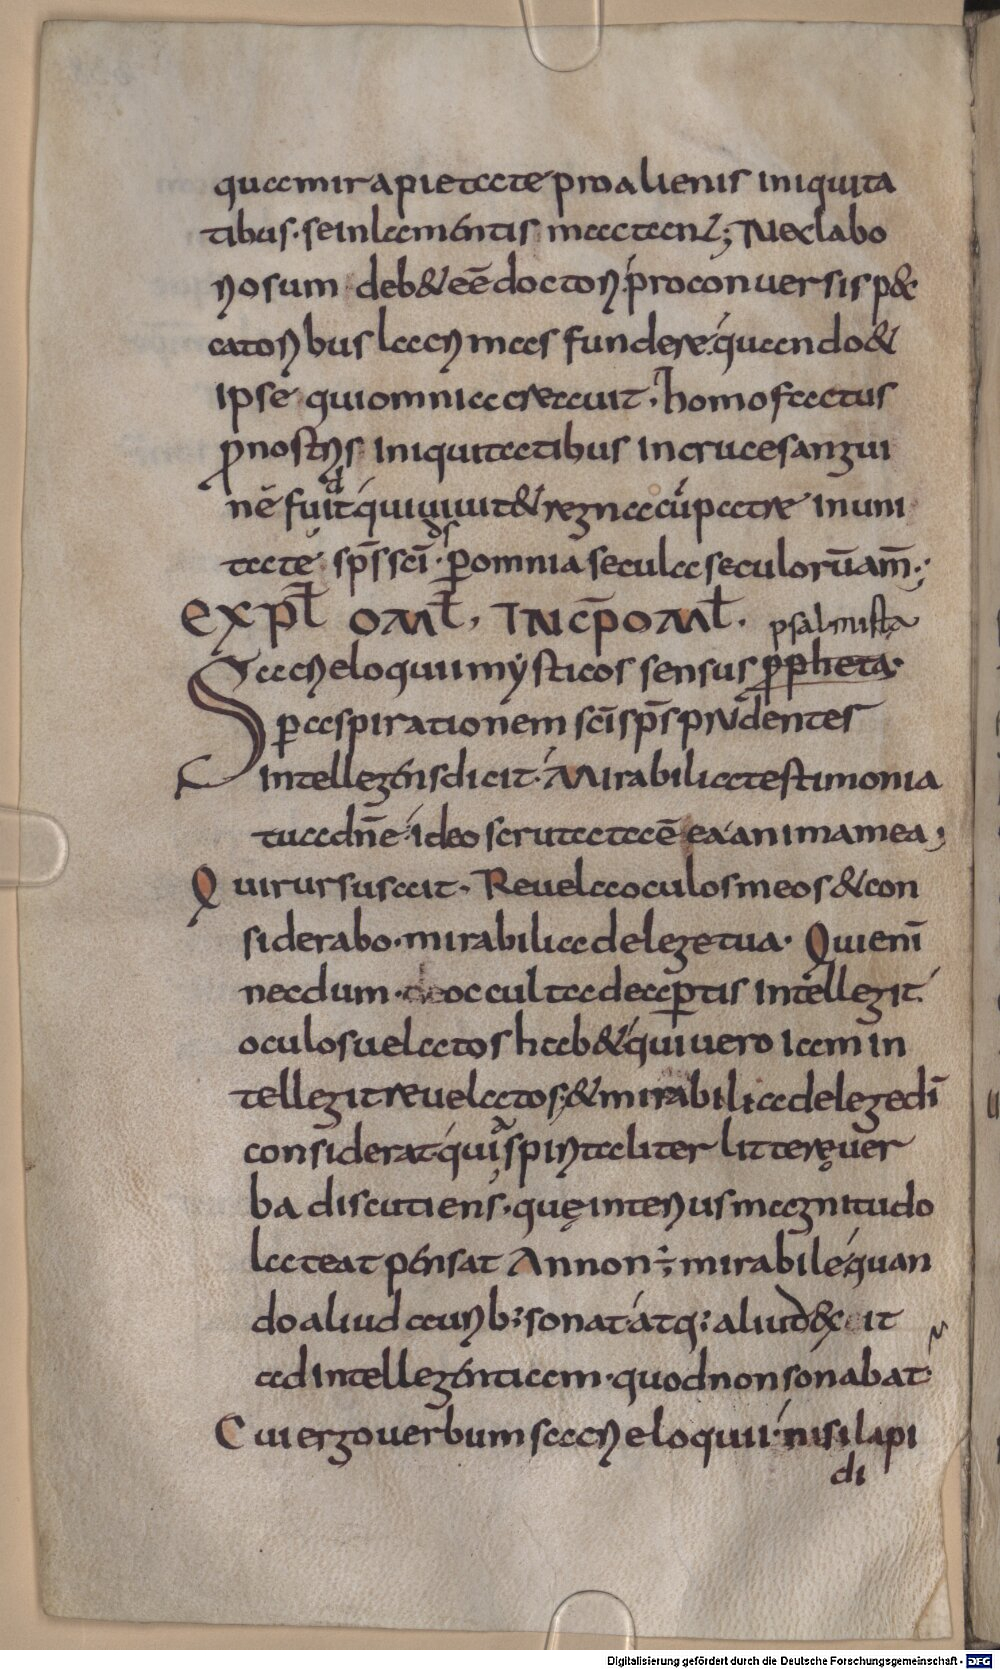 quam mira pietate pro alienis iniquita
tibus· se in lamentis mactant; Nec labo
riosum deb& eē doctori· pro conuersis p&
catoribus lacrimas fundere· quando &
ipse qui omnia creauit· homo factus
ꝓ nostris iniquitatibus in cruce sangui
nē fudit· qui uiuit & regnat cū patre in uni
tate sp̄s sc̄i· ds ꝑ omnia secula seculorū am̄·;
EXPŁ OMŁ, INCP̄ OMŁ· psalmista
Sacri eloquii mysticos sensus ꝓpheta·
ꝑ aspirationem sc̄i sp̄s prudenter
intellegens dicit· Mirabilia testimonia
tua dn̄e· ideo scrutata ē ea anima mea;
Qui rursus ait· Reuela oculos meos & con
siderabo· mirabilia de lege tua· Qui enī
necdum· de occulta de aꝑtis intellegit·
oculos uelatos hab&· qui uero iam in
tellegit reuelatos; & mirabilia de lege dī
considerat· quia spiritaliter litterę uer
ba discutiens· quę interius magnitudo
lateat pensat An non ÷ mirabile· quan
do aliud aurib; sonat· atq; aliud & it
ad intellegentiam· quod non sonabat·
Cui ergo uerbum sacri eloquii· nisi lapi
di
Digitalisierung gefördert durch die Deutsche Forschungsgemeinschaft - DFG